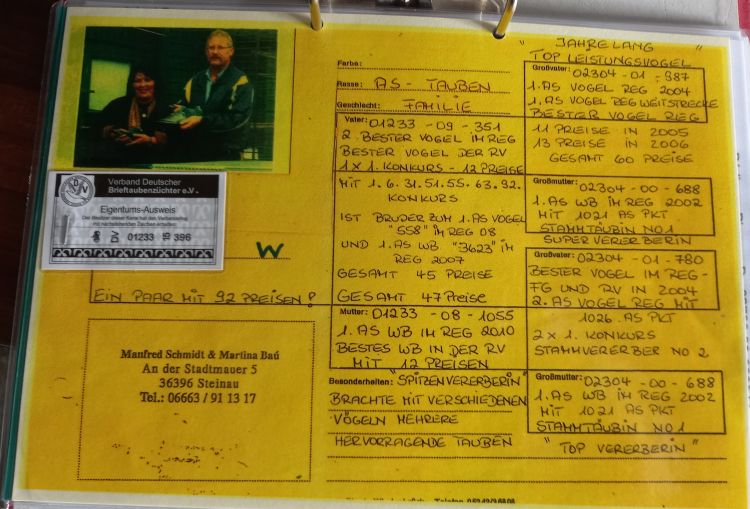 Verband Deutscher
Brieftaubenzüchter e.V.
Eigentums-Ausweis
DV 01233 396
W
EIN PAAR MIT 92 PREISEN!
Manfred Schmidt & Martina Baú
An der Stadtmauer 5
36396 Steinau
Tel.: 06663 / 91 13 17
Farbe:
Rasse: AS - TAUBEN
Geschlecht: FAMILIE
Vater: 01233 - 09 - 351
2. BESTER VOGEL IM REG
BESTER VOGEL DER RV
1 x 1. KONKURS - 12 PREISE
MIT 1. 6. 31. 51. 55. 63. 92.
KONKURS
IST BRUDER ZUM 1. AS VOGEL
"558" IM REG 08
UND 1. AS WB "3623" IM
REG 2007
GESAMT 45 PREISE
GESAMT 47 Preise
Mutter: 01233 - 08 - 1055
1. AS WB IM REG 2010
BESTES WB IN DER RV
MIT 12 PREISEN
Besonderheiten: "SPITZENVERERBERIN"
BRACHTE MIT VERSCHIEDENEN
VÖGELN MEHRERE
HERVORRAGENDE TAUBEN
" JAHRELANG "
TOP LEISTUNGSVOGEL
Großvater: 02304 - 01 - 987
1. AS VOGEL REG 2004
1. AS VOGEL REG WEITSTRECKE
BESTER VOGEL REG
11 PREISE IN 2005
13 PREISE IN 2006
GESAMT 60 PREISE
Großmutter: 02304 - 00 - 688
1. AS WB IM REG 2002
MIT 1021 AS PKT
STAMMTÄUBIN NO 1
SUPERVERERBERIN
Großvater: 02304 - 01 - 780
BESTER VOGEL IM REG -
FG UND RV IN 2004
2. AS VOGEL REG MIT
1026. AS PKT
2 x 1. KONKURS
STAMMVERERBER NO 2
Großmutter: 02304 - 00 - 688
1. AS WB IM REG 2002
MIT 1021 AS PKT
STAMMTÄUBIN NO 1
" TOP VERERBERIN "